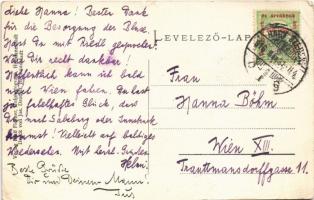 Liebe Hanna! Besten Dank
für die Besorgung der Bluse.
Hast Du mit Riedl gesprochen?
Wär Dir recht dankbar!
Hoffentlich kann ich bald
nach Wien fahren. Du hast
ja fabelhaftes Glück, dass
Du nach Salzburg oder Innsbruck
kommst! Vielleicht auf baldiges
Wiedersehen. Mit herzl. Grüßen
Helmi
Beste Grüße
Dir und Deinem Mann!
LEVELEZŐ-LAP
Frau
Hanna Böhm
Wien XIII.
Trauttmansdorffgasse 11.